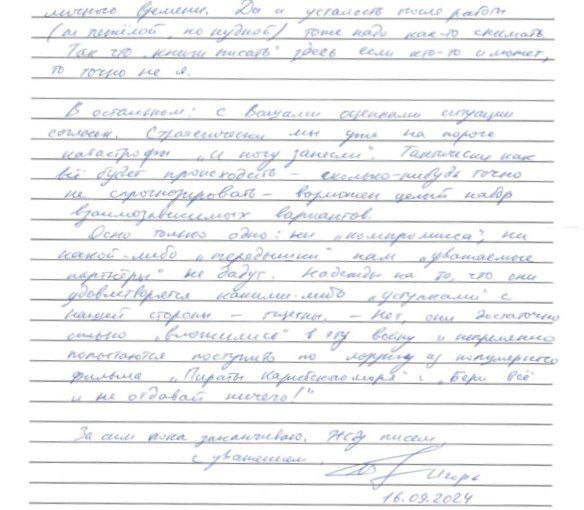 личного времени. Да и усталость после работы
(не тяжёлой, но нудной) тоже надо как-то снимать.
Так что „книги писать" здесь если кто-то и может,
то точно не я.
В остальном: с Вашими оценками ситуации
согласен. Стратегически мы уже на пороге
катастрофы „и ногу занесли". Тактически как
всё будет происходить – сколько-нибудь точно
не спрогнозировать – возможен целый набор
взаимозависимых вариантов.
Ясно только одно: ни „компромисса", ни
какой-либо „передышки" нам „уважаемые
партнёры" не дадут. Надежды на то, что они
удовлетворятся какими-либо „уступками" с
нашей стороны – тщетны. – Нет, они достаточно
сильно „вложились" в эту войну и непременно
попытаются поступить по лозунгу из популярного
фильма „Пираты Карибского моря": „Бери всё
и не отдавай ничего!"
За сим пока заканчиваю. Жду писем,
с уважением, Игорь
16.09.2024